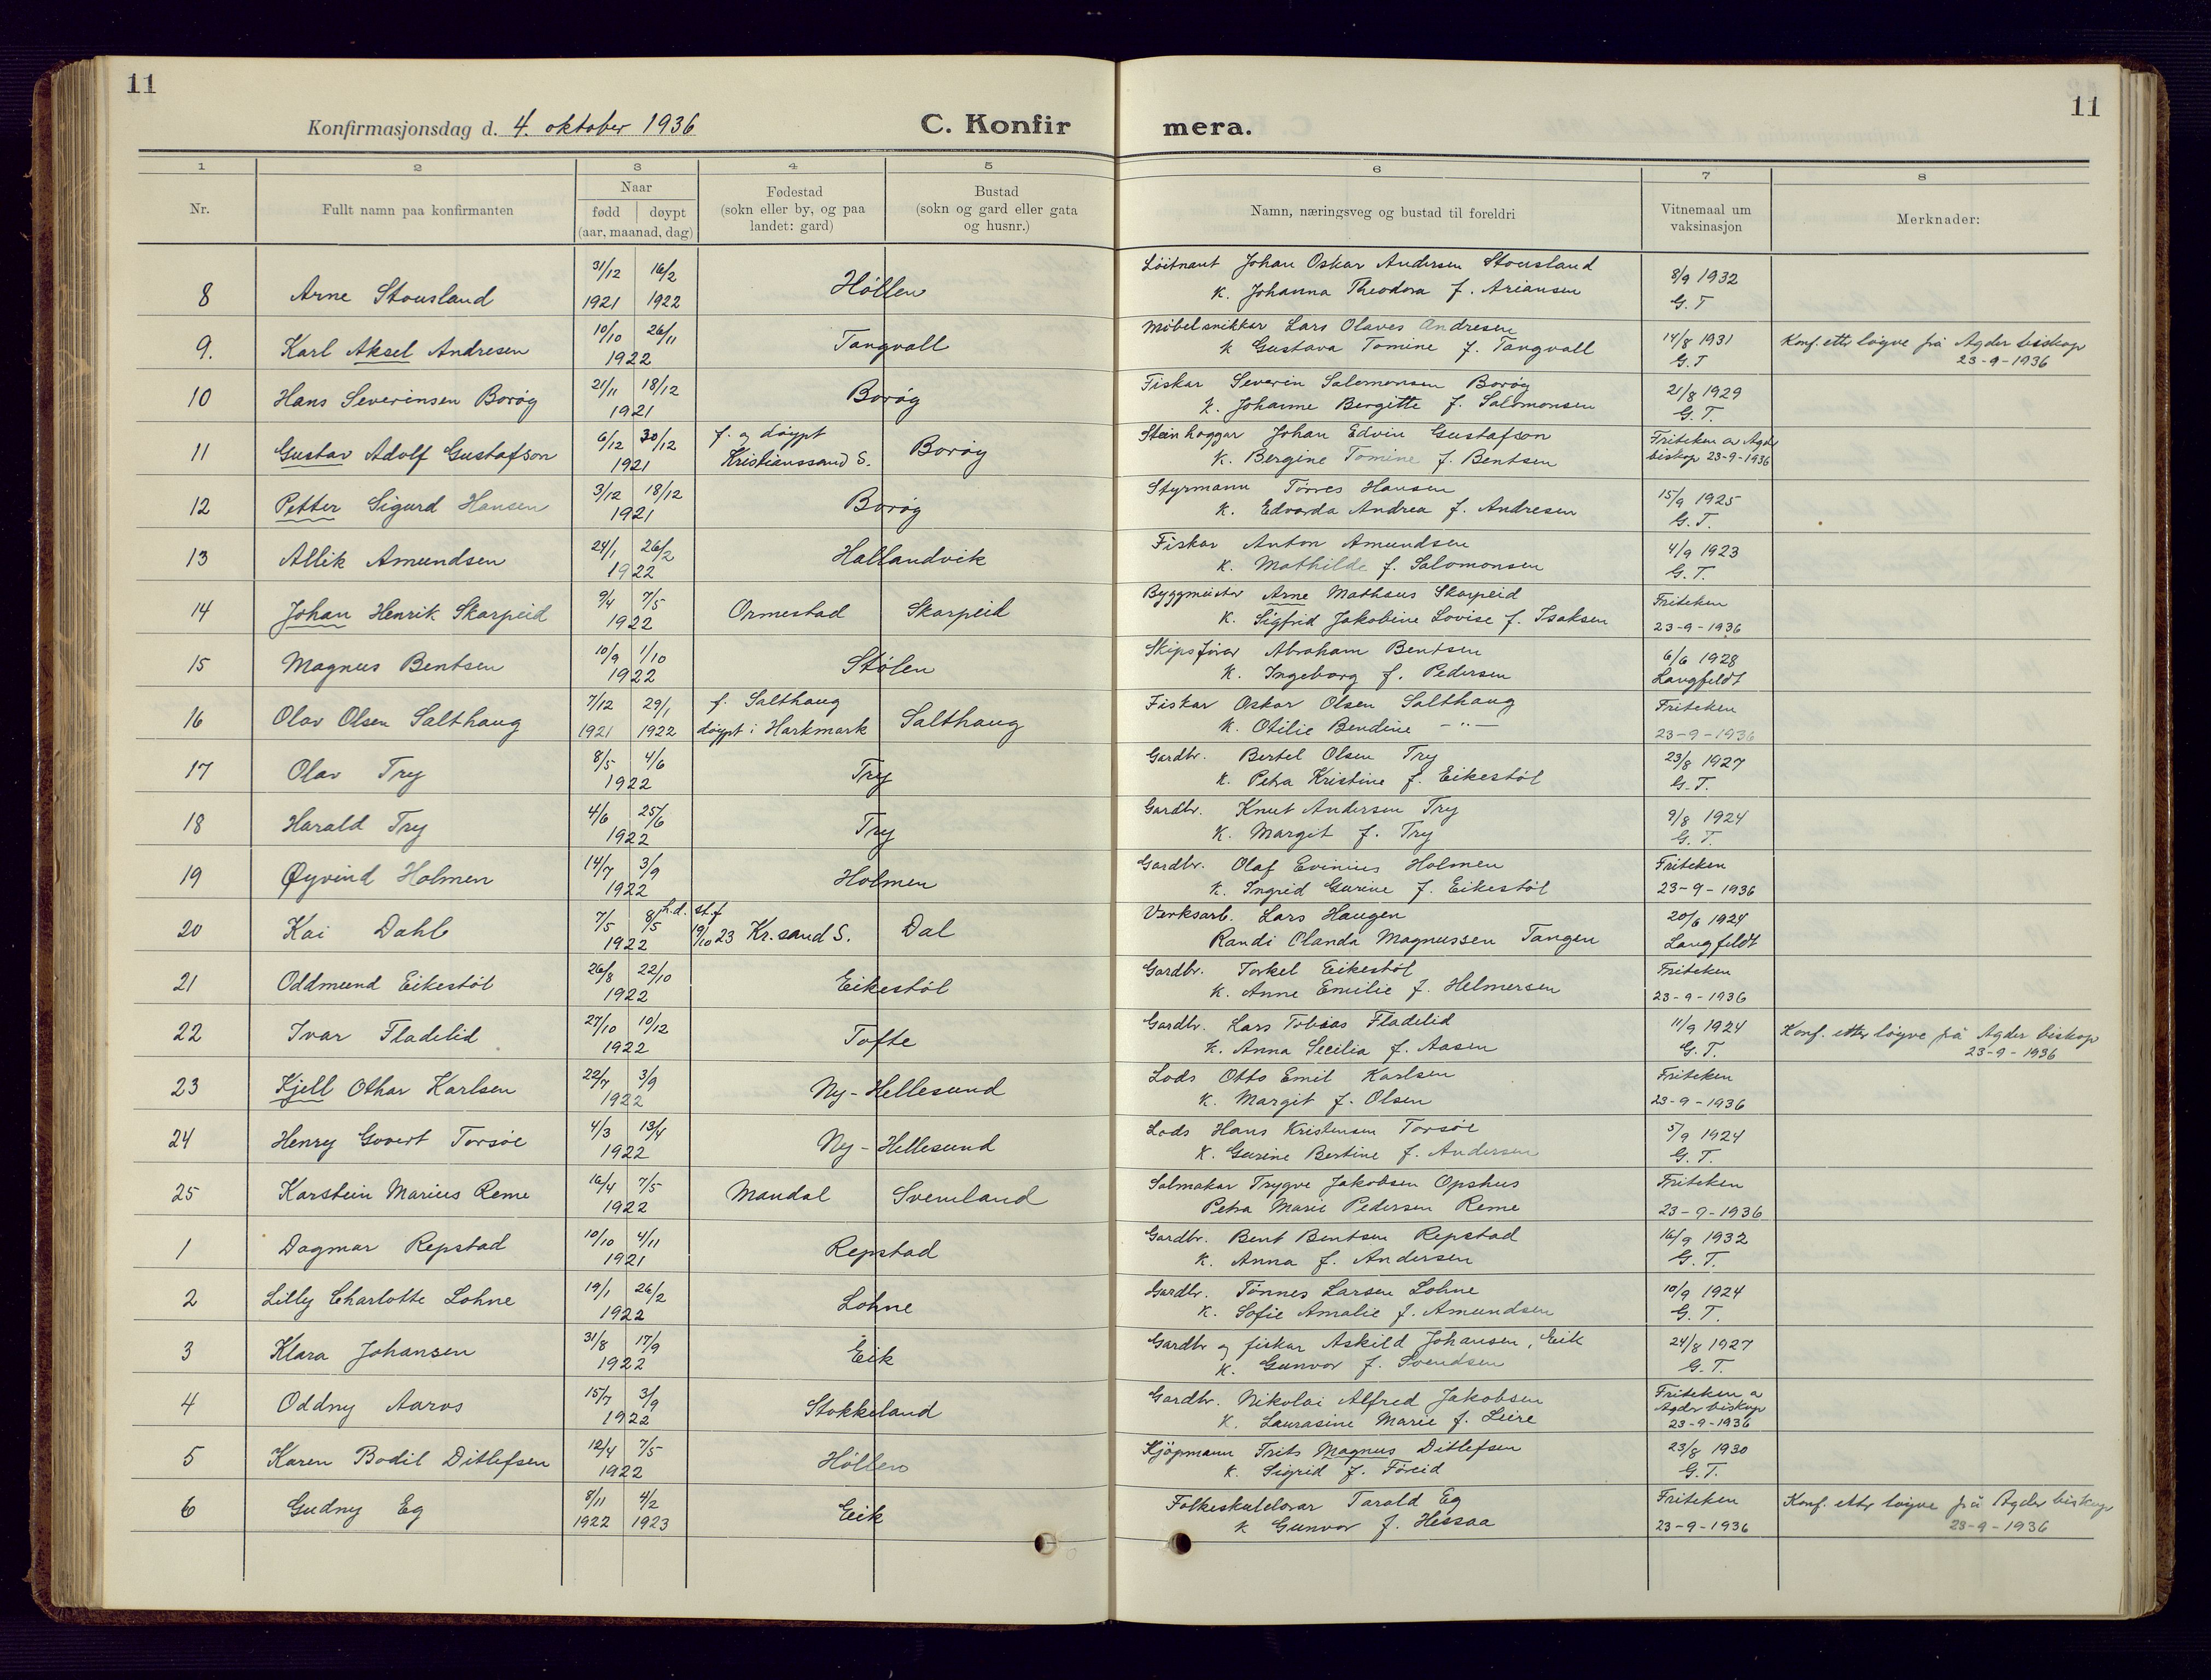 11
11
Konfirmasjonsdag d. 4. oktober 1936
C. Konfir
mera.
1 2 3 4 5 6 7 8
Nr.
Fullt namn paa konfirmanten
Naar
fødd døypt
(aar, maanad, dag)
Fødestad
(sokn eller by, og paa
landet: gard)
Bustad
(sokn og gard eller gata
og husnr.)
Namn, næringsveg og bustad til foreldri
Vitnemaal um
vaksinasjon
Merknader:
31/12 16/2 Löitnant Johan Oskar Andersen Stousland 8/9 1932
8 Arne Stousland 1921 1922 Høllen K. Johanna Theodora f. Ariansen G. T
10/10 26/11 Møbelsnikkar Lars Olaves Andresen 14/8 1931 Konf. etter løyve frå Agder biskop
9. Karl Aksel Andresen 1922 Tangvall K Gustava Tomine f. Tangvall G. T 23-9-1936
21/11 18/12 Fiskar Severin Salomonsen Borøy 21/8 1929
10 Hans Severinsen Borøy 1921 Borøy K. Johanne Bergitte f. Salomonsen G. T.
6/12 30/12 f. og døypt Steinhoggar Johan Edvin Gustafson Friteken av Agder
11 Gustav Adolf Gustafson 1921 Kristianssand S. Borøy K. Bergine Tomine f. Bentsen biskop 23-9-1936
3/12 18/12 Styrmann Törres Hansen 15/9 1925
12 Petter Sigurd Hansen 1921 Borøy K. Edvarda Andrea f. Andresen G. T.
24/1 26/2 Fiskar Anton Amundsen 4/9 1923
13 Allik Amundsen 1922 Hallandvik K. Mathilde f. Salomonsen G. T.
9/4 7/5 Byggmeister Arne Mathæus Skarpeid Friteken
14 Johan Henrik Skarpeid 1922 Ormestad Skarpeid K. Sigfrid Jakobine Lovise f. Isaksen 23-9-1936
10/9 1/10 Skipsförar Abraham Bentsen 6/6 1928
15 Magnus Bentsen 1922 Stölen K. Ingeborg f. Pedersen Langfeldt
7/12 29/1 f. Salthaug Fiskar Oskar Olsen Salthaug Friteken
16 Olav Olsen Salthaug 1921 1922 døypt i Harkmark Salthaug K. Otilie Bendine - " - 23-9-1936
8/5 4/6 Gardbr. Bertel Olsen Try 23/8 1927
17 Olav Try 1922 Try K. Petra Kristine f. Eikestöl G. T.
4/6 25/6 Gardbr. Knut Andersen Try 9/8 1924
18 Harald Try 1922 Try K. Margit f. Try G. T.
14/7 3/9 Gardbr. Olaf Evinius Holmen Friteken
19 Øyvind Holmen 1922 Holmen K. Ingrid Gurine f. Eikestöl 23-9-1936
7/5 8/5 h.d. st.f Verksarb. Lars Haugen 20/6 1924
20 Kai Dahl 1922 19/10 23 Kr.sand S. Dal Randi Olanda Magnussen Tangen Langfeldt
26/8 22/10 Gardbr. Torkel Eikestöl Friteken
21 Oddmund Eikestöl 1922 Eikestöl K. Anne Emilie f. Helmersen 23-9-1936
27/10 10/12 Gardbr. Lars Tobias Fladelid 11/9 1924 Konf. etter løyve frå Agder biskop
22 Ivar Fladelid 1922 Tofte K. Anna Secilia f. Aasen G. T. 23-9-1936
22/7 3/9 Lods Otto Emil Karlsen Friteken
23 Kjell Othar Karlsen 1922 Ny-Hellesund K. Margit f. Olsen 23-9-1936
4/3 13/4 Lods Hans Kristensen Torsöe 5/9 1924
24 Henry Govert Torsöe 1922 Ny-Hellesund K. Gurine Bertine f. Andersen G. T.
16/4 7/5 Salmakar Trygve Jakobsen Opshus Friteken
25 Karstein Marius Reme 1922 Mandal Svenland Petra Marie Pedersen Reme 23-9-1936
10/10 4/11 Gardbr. Bent Bentsen Repstad 16/9 1932
1 Dagmar Repstad 1921 Repstad K. Anna f. Andersen G. T.
19/1 26/2 Gardbr. Tönnes Larsen Lohne 10/9 1924
2 Lilly Charlotte Lohne 1922 Lohne K. Sofie Amalie f. Amundsen G. T.
31/8 17/9 Gardbr og fiskar Askild Johansen, Eik 24/8 1927
3 Klara Johansen 1922 Eik K. Gunvor f. Svendsen G. T.
15/7 3/9 Gardbr. Nikolai Alfred Jakobsen Friteken a
4 Oddny Aaros 1922 Stokkeland K. Laurasine Marie f. Leire Agder biskop
23-9-1936
12/4 7/5 Kjöpmann Frits Magnus Ditlefsen 23/8 1930
5 Karen Bodil Ditlefsen 1922 Høllen K. Sigrid f. Föreid G. T.
8/11 4/2 Folkeskulelærar Tarald Eg Friteken Konf. etter løyve frå Agder biskop
6 Gudny Eg 1922 1923 Eik K Gunvor f. Hessaa 23-9-1936 23-9-1936